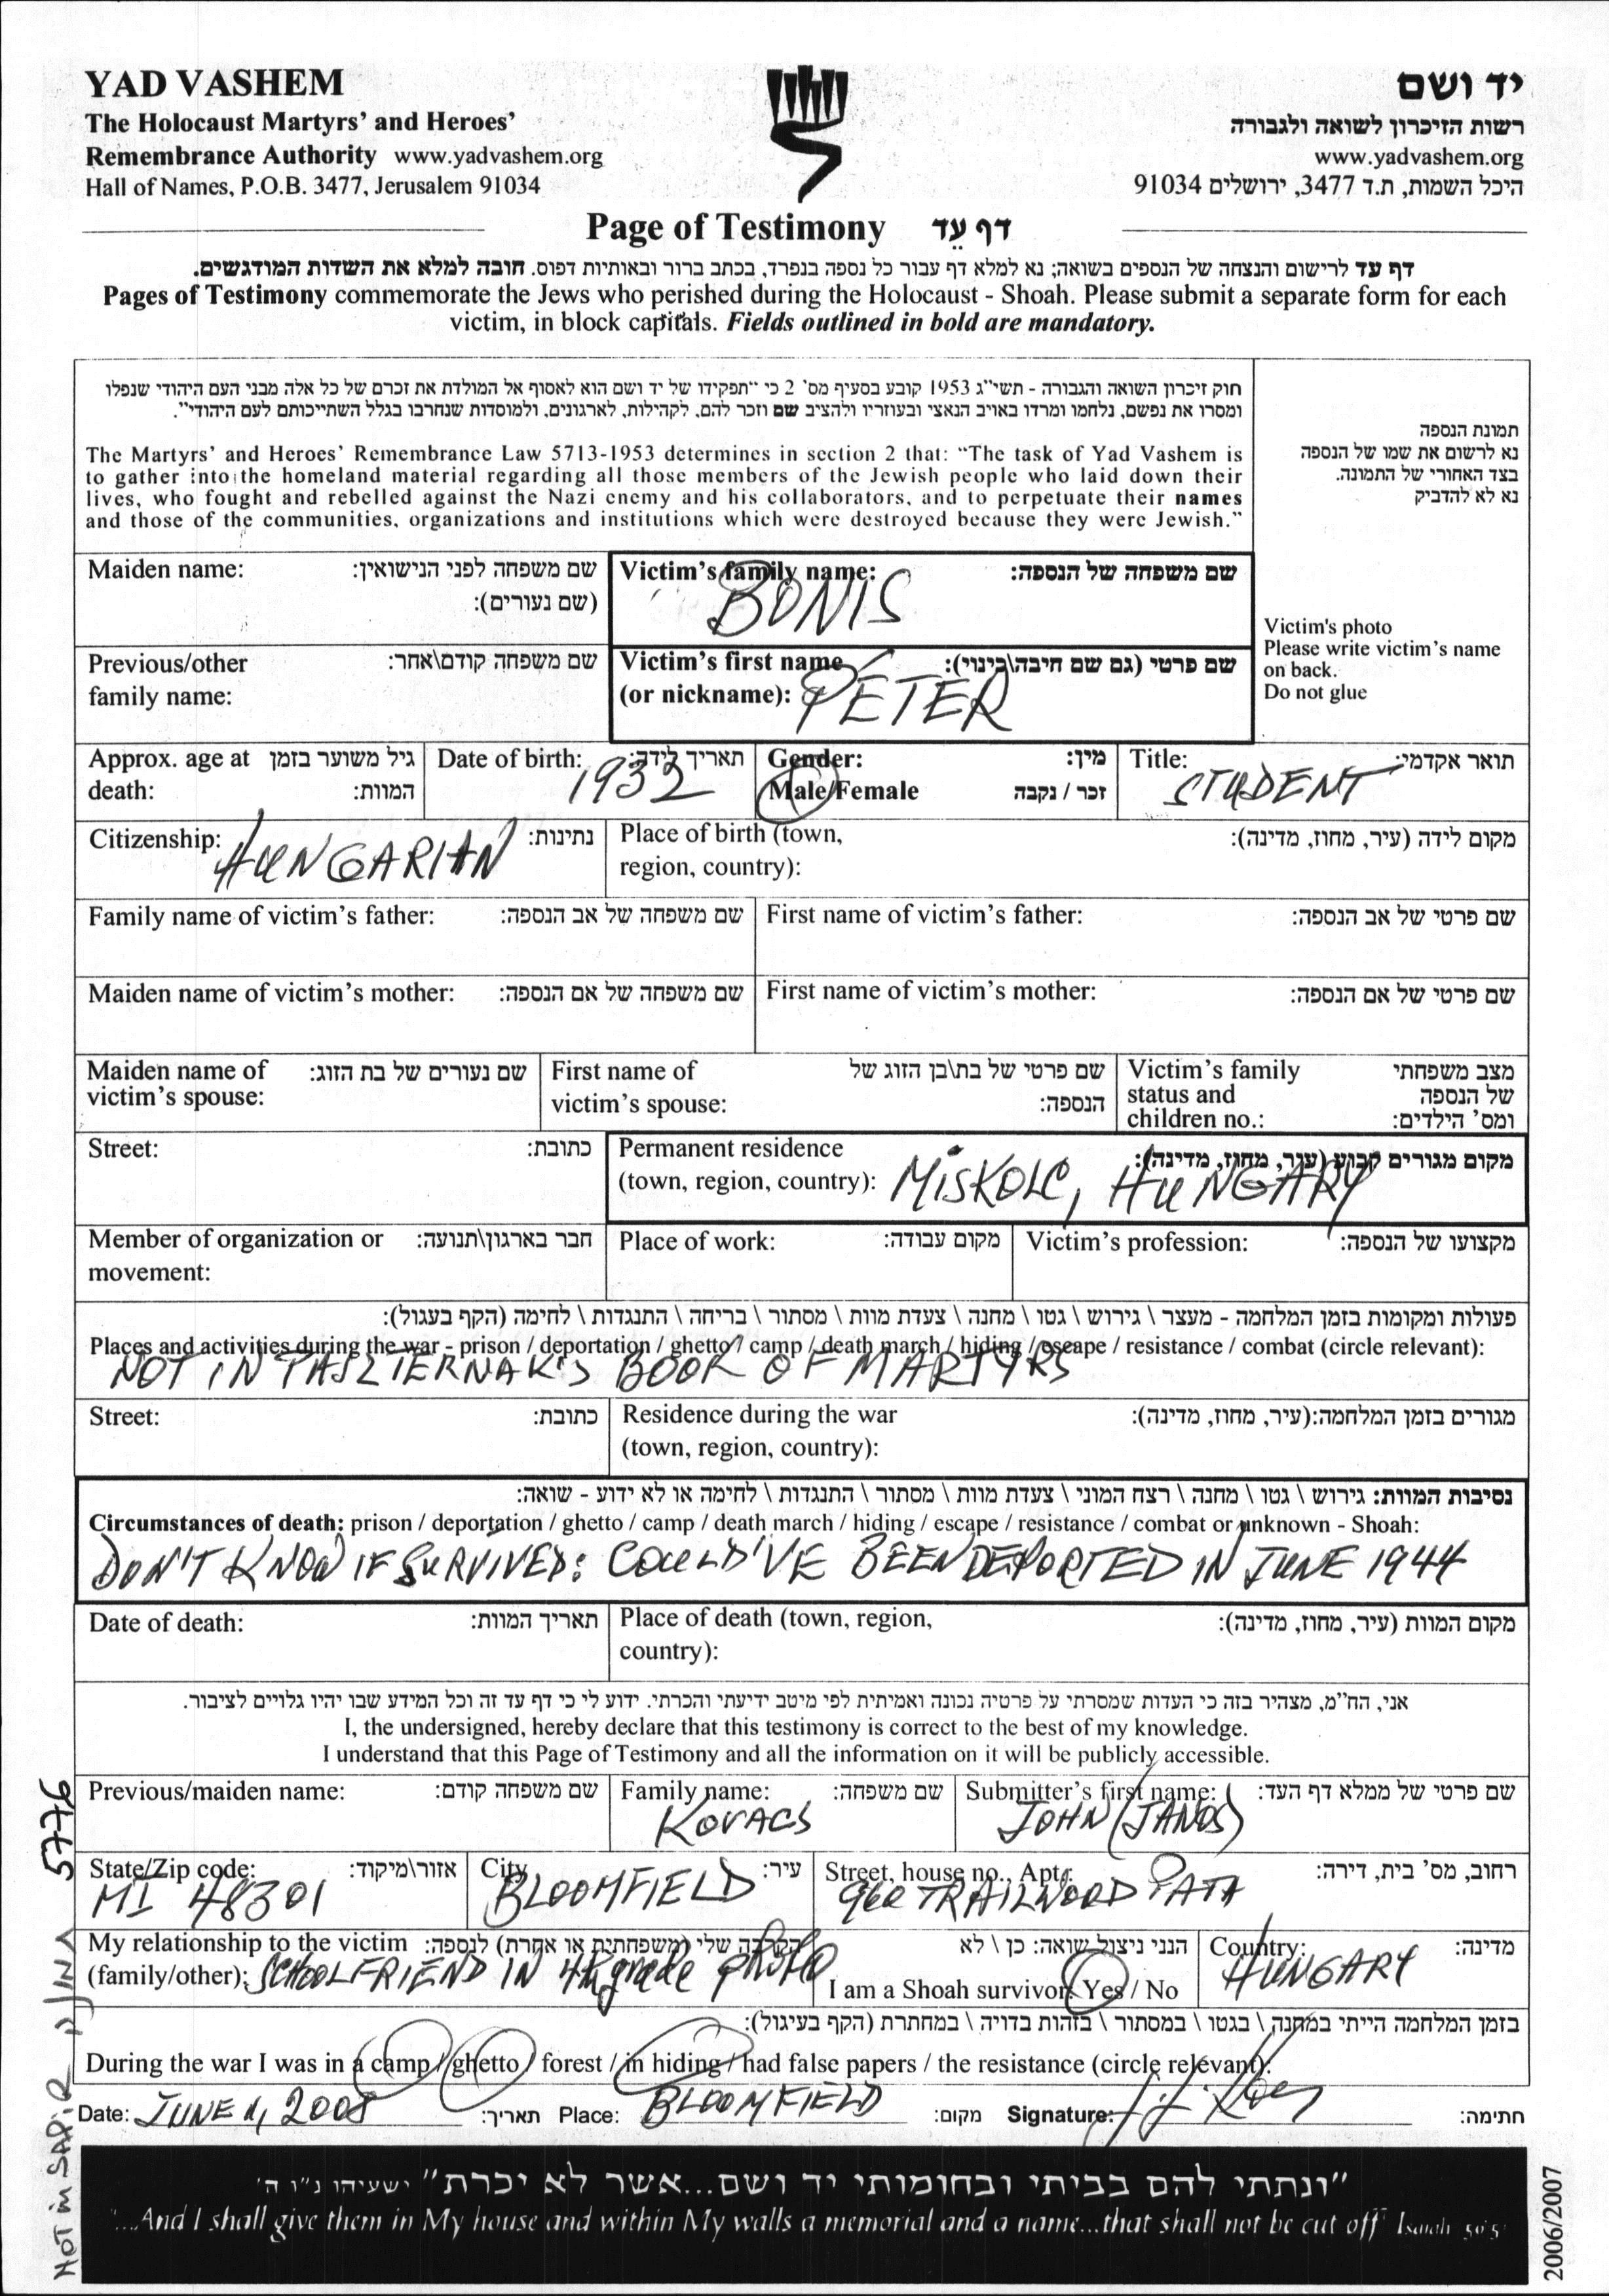 YAD VASHEM
The Holocaust Martyrs' and Heroes'
Remembrance Authority www.yadvashem.org
Hall of Names, P.O.B. 3477, Jerusalem 91034
יד ושם
רשות הזיכרון לשואה ולגבורה
www.yadvashem.org
היכל השמות, ת.ד 3477, ירושלים 91034
Page of Testimony דף עֵד
דף עד לרישום והנצחה של הנספים בשואה; נא למלא דף עבור כל נספה בנפרד, בכתב ברור ובאותיות דפוס. חובה למלא את השדות המודגשים.
Pages of Testimony commemorate the Jews who perished during the Holocaust - Shoah. Please submit a separate form for each
victim, in block capitals. Fields outlined in bold are mandatory.
חוק זיכרון השואה והגבורה - תשי"ג 1953 קובע בסעיף מס' 2 כי "תפקידו של יד ושם הוא לאסוף אל המולדת את זכרם של כל אלה מבני העם היהודי שנפלו
ומסרו את נפשם, נלחמו ומרדו באויב הנאצי ובעוזריו ולהציב שם וזכר להם, לקהילות, לארגונים, ולמוסדות שנחרבו בגלל השתייכותם לעם היהודי".
The Martyrs' and Heroes' Remembrance Law 5713-1953 determines in section 2 that: "The task of Yad Vashem is
to gather into the homeland material regarding all those members of the Jewish people who laid down their
lives, who fought and rebelled against the Nazi enemy and his collaborators, and to perpetuate their names
and those of the communities, organizations and institutions which were destroyed because they were Jewish."
תמונת הנספה
נא לרשום את שמו של הנספה
בצד האחורי של התמונה.
נא לא להדביק
Victim's photo
Please write victim's name
on back.
Do not glue
Maiden name: שם משפחה לפני הנישואין:
(שם נעורים):
Victim's family name: שם משפחה של הנספה:
BONIS
Previous/other שם משפחה קודם\אחר:
family name:
Victim's first name שם פרטי (גם שם חיבה\כינוי):
(or nickname): PÉTER
Approx. age at גיל משוער בזמן
death: המוות:
Date of birth: תאריך לידה:
1932
Gender: מין:
Male/Female זכר / נקבה
Title: תואר אקדמי:
STUDENT
Citizenship: נתינות:
HUNGARIAN
Place of birth (town, מקום לידה (עיר, מחוז, מדינה):
region, country):
Family name of victim's father: שם משפחה של אב הנספה:
First name of victim's father: שם פרטי של אב הנספה:
Maiden name of victim's mother: שם משפחה של אם הנספה:
First name of victim's mother: שם פרטי של אם הנספה:
Maiden name of שם נעורים של בת הזוג:
victim's spouse:
First name of שם פרטי של בת\בן הזוג של
victim's spouse: הנספה:
Victim's family מצב משפחתי
status and של הנספה
children no.: ומס' הילדים:
Street: כתובת:
Permanent residence מקום מגורים קבוע (עיר, מחוז, מדינה):
(town, region, country): MISKOLC, HUNGARY
Member of organization or חבר בארגון\תנועה:
movement:
Place of work: מקום עבודה:
Victim's profession: מקצועו של הנספה:
פעולות ומקומות בזמן המלחמה - מעצר \ גירוש \ גטו \ מחנה \ צעדת מוות \ מסתור \ בריחה \ התנגדות \ לחימה (הקף בעגול):
Places and activities during the war - prison / deportation / ghetto / camp / death march / hiding / escape / resistance / combat (circle relevant):
NOT IN PASZTERNAK'S BOOK OF MARTYRS
Street: כתובת:
Residence during the war מגורים בזמן המלחמה:(עיר, מחוז, מדינה):
(town, region, country):
נסיבות המוות: גירוש \ גטו \ מחנה \ רצח המוני \ צעדת מוות \ מסתור \ התנגדות \ לחימה או לא ידוע - שואה:
Circumstances of death: prison / deportation / ghetto / camp / death march / hiding / escape / resistance / combat or unknown - Shoah:
DON'T KNOW IF SURVIVED: COULD'VE BEEN DEPORTED IN JUNE 1944
Date of death: תאריך המוות:
Place of death (town, region, מקום המוות (עיר, מחוז, מדינה):
country):
אני, הח"מ, מצהיר בזה כי העדות שמסרתי על פרטיה נכונה ואמיתית לפי מיטב ידיעתי והכרתי. ידוע לי כי דף עד זה וכל המידע שבו יהיו גלויים לציבור.
I, the undersigned, hereby declare that this testimony is correct to the best of my knowledge.
I understand that this Page of Testimony and all the information on it will be publicly accessible.
Previous/maiden name: שם משפחה קודם:
Family name: שם משפחה:
KOVACS
Submitter's first name: שם פרטי של ממלא דף העד:
JOHN (JANOS)
State/Zip code: אזור\מיקוד:
MI 48301
City עיר:
BLOOMFIELD
Street, house no., Apt.: רחוב, מס' בית, דירה:
960 TRAILWOOD PATH
My relationship to the victim הקרבה שלי (משפחתית או אחרת) לנספה:
(family/other): SCHOOLFRIEND IN 4th grade photo
הנני ניצול שואה: כן \ לא
I am a Shoah survivor: Yes / No
Country: מדינה:
HUNGARY
בזמן המלחמה הייתי במחנה \ בגטו \ במסתור \ בזהות בדויה \ במחתרת (הקף בעיגול):
During the war I was in a camp / ghetto / forest / in hiding / had false papers / the resistance (circle relevant):
Date: JUNE 1, 2008 תאריך: Place: BLOOMFIELD מקום: Signature: חתימה:
"ונתתי להם בביתי ובחומותי יד ושם...אשר לא יכרת" ישעיהו נ"ו ה'
"...And I shall give them in My house and within My walls a memorial and a name...that shall not be cut off" Isaiah 56:5
NOT in SAPIR 5776
2006/2007